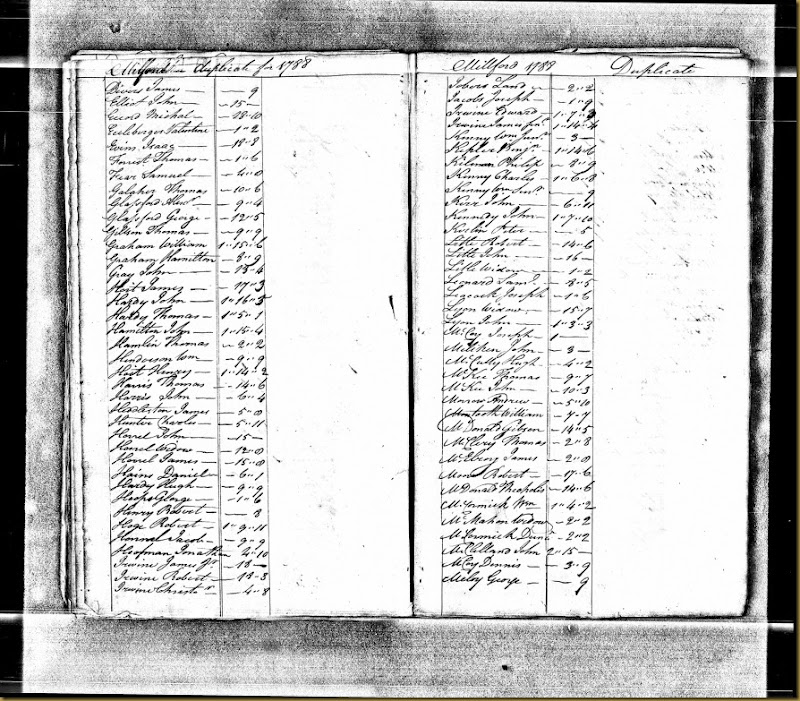 Milford Duplicat for 1788
Divers James — 9
Elliot John — — 15 —
Michal — 18 " 10
Valentine — 1 " 2
Evins Isaac — 18 " 8
Forrist Thomas — — 1 " 6
Fear Samuel — — 4 " 0
Galaher Thomas — 10 " 6
Glasford Alexr — 9 " 4
Glasford George — — 12 " 5
Thomas — — 9 " 9
Graham William 1 " 15 " 6
Graham Hamilton — 3 " 9
Gray John — — 13 " 4
James — — 17 " 3
Hardy John — 1 " 16 " 5
Hardy Thomas — 1 " 5 " 1
Hamilton John — 1 " 15 " 4
Hamlin Thomas — 2 " 2
Henderson Wm — 9 " 9
Henry — 1 " 14 " 2
Harris Thomas — 14 " 6
Harris John — — 6 " 4
James — 5 " 0
Hunter Charles — — 5 " 11
Horrel John — — 15 —
Horrel Widow — — 12 " 0
Horrel James — — 15 " 0
Hains Daniel — — 6 " 1
Hardy Hugh — — 9 " 9
Heaps George — — 1 " 6
Henry Robert — — 8
Hoge Robert 1 " 9 " 11
Jacob — — 9 " 9
Hoofman Jonathan 2 " 10
Irwine James Jr — 13 —
Irwine Robert — 13 " 3
Irwine Christr — 4 " 8
Millford 1789 Duplicate
Land — 2 " 2
Jacobs Joseph — — 1 " 9
Irwine Edward 1 " 7 " 3
Irwine James 1 " 14 " 4
Kenny Wm Junr — 3 —
Kepler Benjn 1 " 14 " 6
Kilman Philip — 2 " 9
Kinny Charles — 1 " 6 " 8
Kenny Wm — 9
Kerr John — 6 " 11
Kennedy John — 1 " 7 " 10
Peter — — 5
Little Robert — 14 " 6
Little John — — 16 —
Little Widow — 1 " 2
Leonard Saml — 8 " 5
Legcock Joseph — 1 " 6
Lyon Widow — 15 " 7
Lyon John — 1 " 3 " 3
McCoy Joseph — 1 —
Milliken John — — 3 —
McCully Hugh — 4 " 2
McKee Thomas — 9 " 7
McKee John — — 10 " 3
Morrow Andrew — — 5 " 10
William — 7 " 7
McDonald Gibson — 14 " 5
Thomas — 2 " 8
McElroy James — 2 " 0
Robert — — 17 " 6
McDonald Theopolis — 14 " 6
McCormick Wm 1 " 4 " 2
McMahon Widow — 2 " 2
McCormick — 2 " 2
McClelland John 2 " 15 —
McCoy Dennis — — 3 " 9
Meloy George — — 9